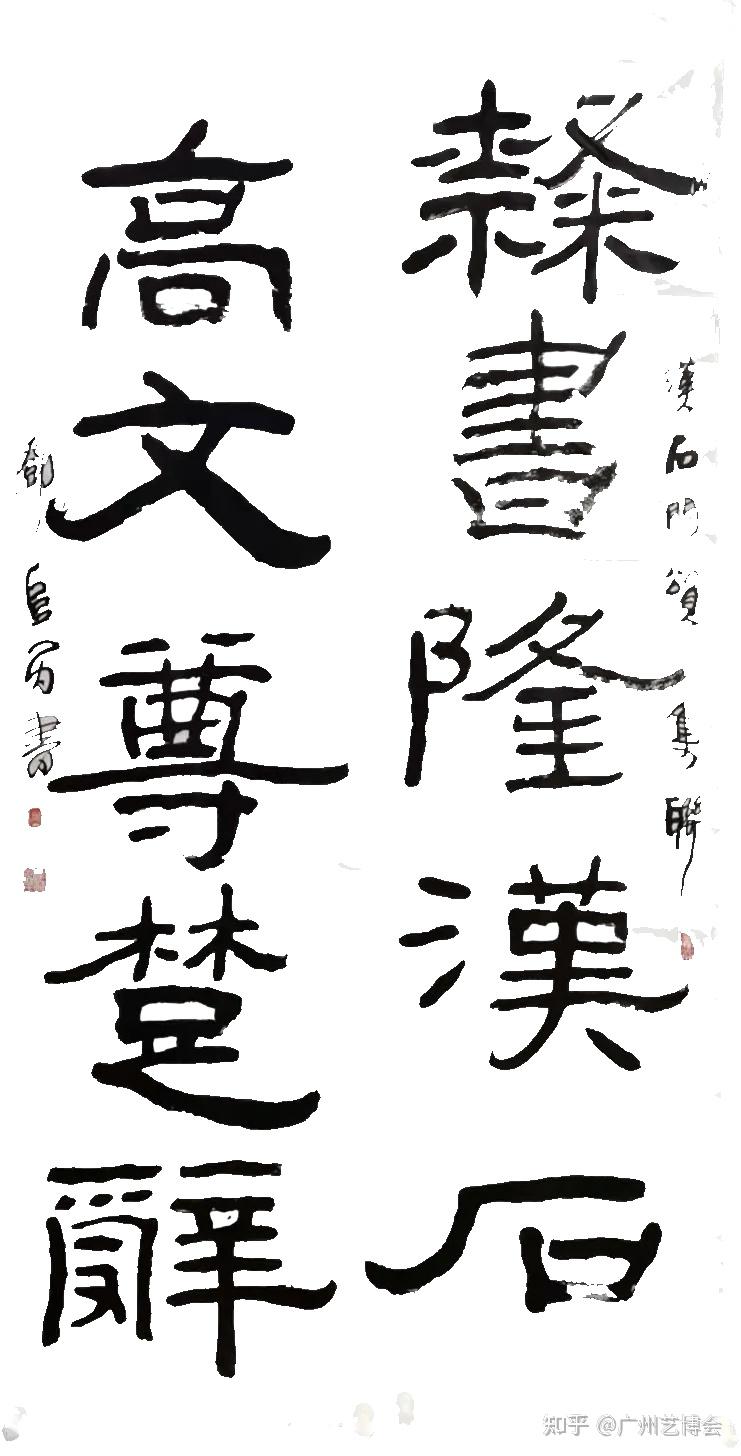 漢石門頌集聯
隸書隆漢石
高文尊楚辭
鄧
書
知乎 @广州艺博会